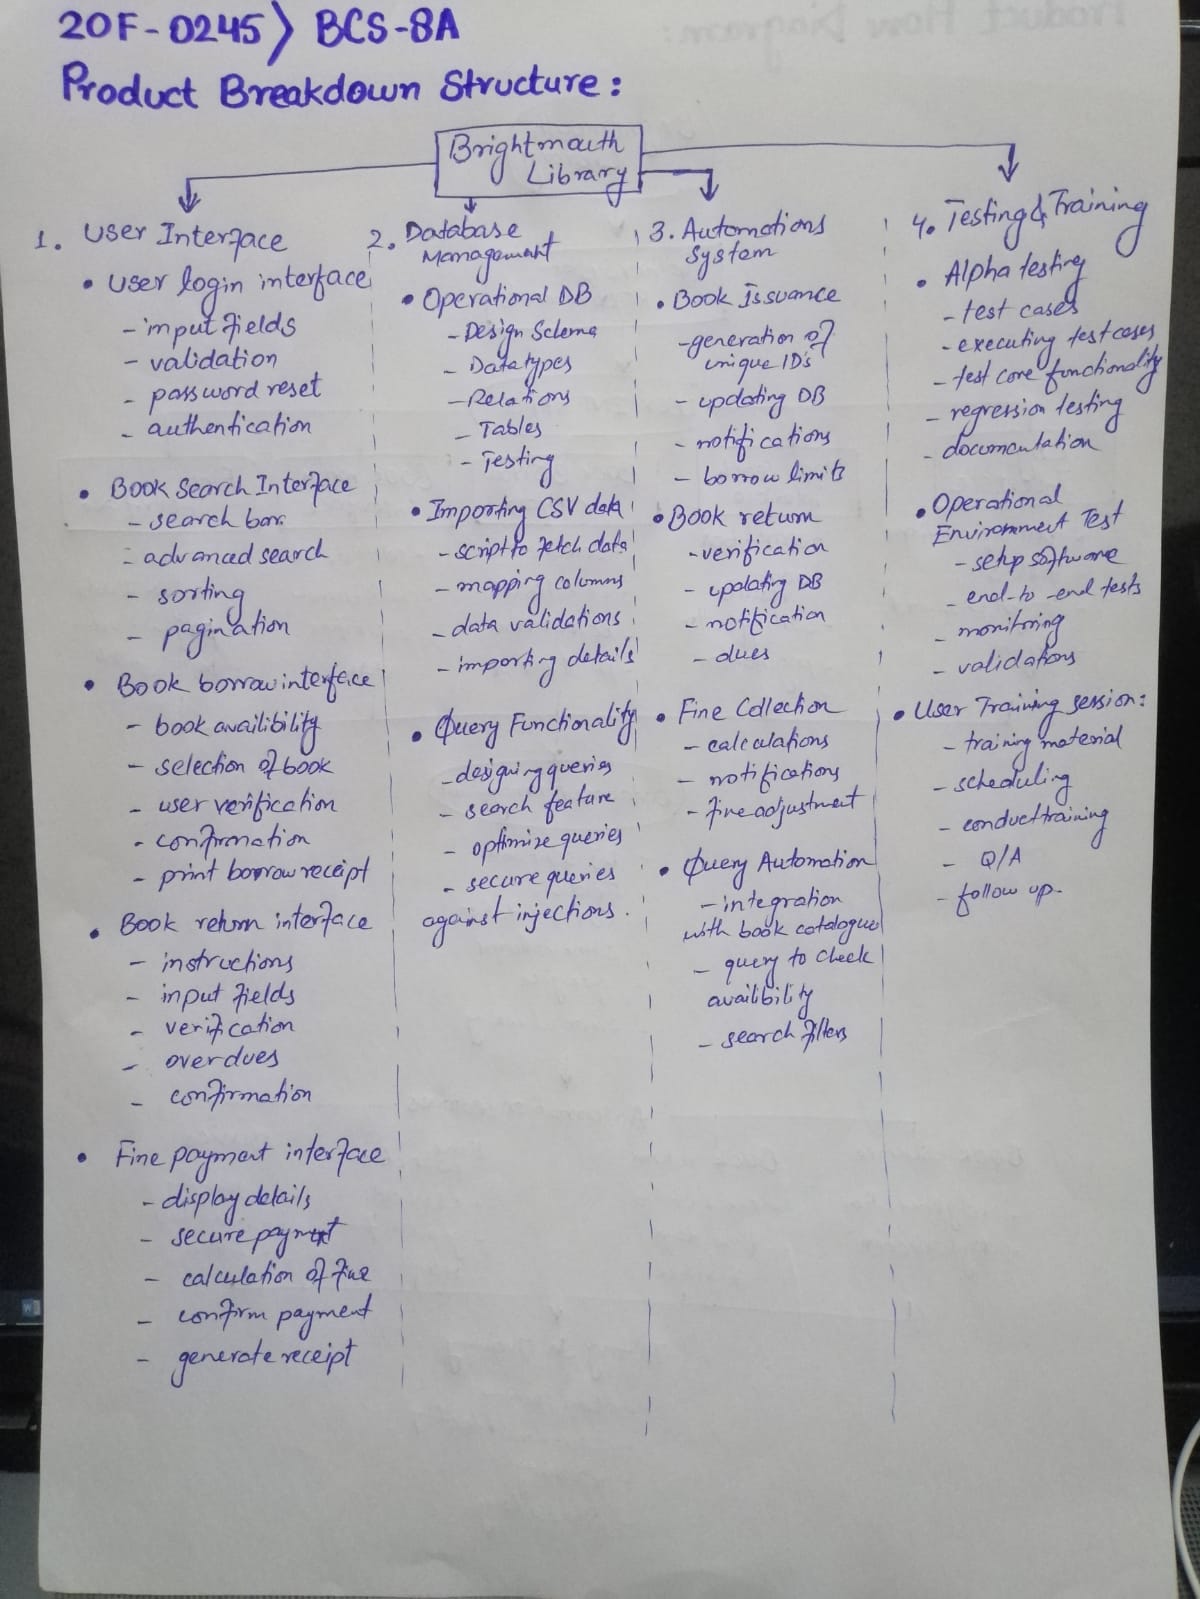 20F-0245> BCS-8A
Product Breakdown Structure:
Brightmouth
Library
1. User Interface
• User login interface
- input fields
- validation
- password reset
- authentication
• Book Search Interface
- search bar
- advanced search
- sorting
- pagination
• Book borrow interface
- book availibility
- selection of book
- user verification
- confirmation
- print borrow receipt
• Book return interface
- instructions
- input fields
- verification
- overdues
- confirmation
• Fine payment interface
- display details
- secure payment
- calculation of fine
- confirm payment
- generate receipt
2. Database
Management
• Operational DB
- Design Schema
- Datatypes
- Relations
- Tables
- Testing
• Importing CSV data
- script to fetch data
- mapping columns
- data validations
- importing details
• Query Functionality
- designing queries
- search feature
- optimize queries
- secure queries
against injections.
3. Automations
System
• Book Issuance
- generation of
unique ID's
- updating DB
- notifications
- borrow limits
• Book return
- verification
- updating DB
- notification
- dues
• Fine Collection
- calculations
- notifications
- fine adjustment
• Query Automation
- integration
with book catalogue
- query to check
availibility
- search filters
4. Testing & Training
• Alpha testing
- test cases
- executing test cases
- test core functionality
- regression testing
- documentation
• Operational
Environment Test
- setup software
- end-to-end tests
- monitoring
- validations
• User Training session:
- training material
- scheduling
- conduct training
- Q/A
- follow up.